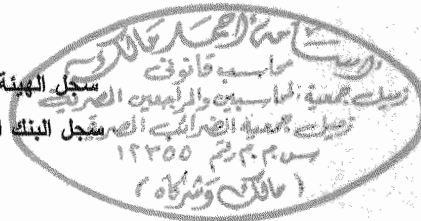 أسامة أحمد مالك
محاسب قانونى
زميل جمعية المحاسبين والمراجعين المصرية
زميل جمعية الضرائب المصرية
س.م.م رقم ١٢٣٥٥
( مالك وشركاه )
سجل الهيئة
سجل البنك ا